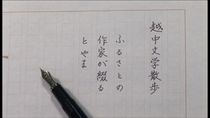 越中文学散歩
ふるさとの
作家が綴る
とやま